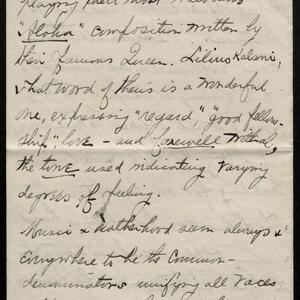 playing their most
"Aloha" composition written by
their famous Queen. Liliuokalani,
that word of theirs is a wonderful
one, expressing "regard," "good fellow-
ship," love - and farewell withal,
the tone used indicating varying
degrees of feeling.
Music & Motherhood seem always &
everywhere to be the common-
denominators unifying all races